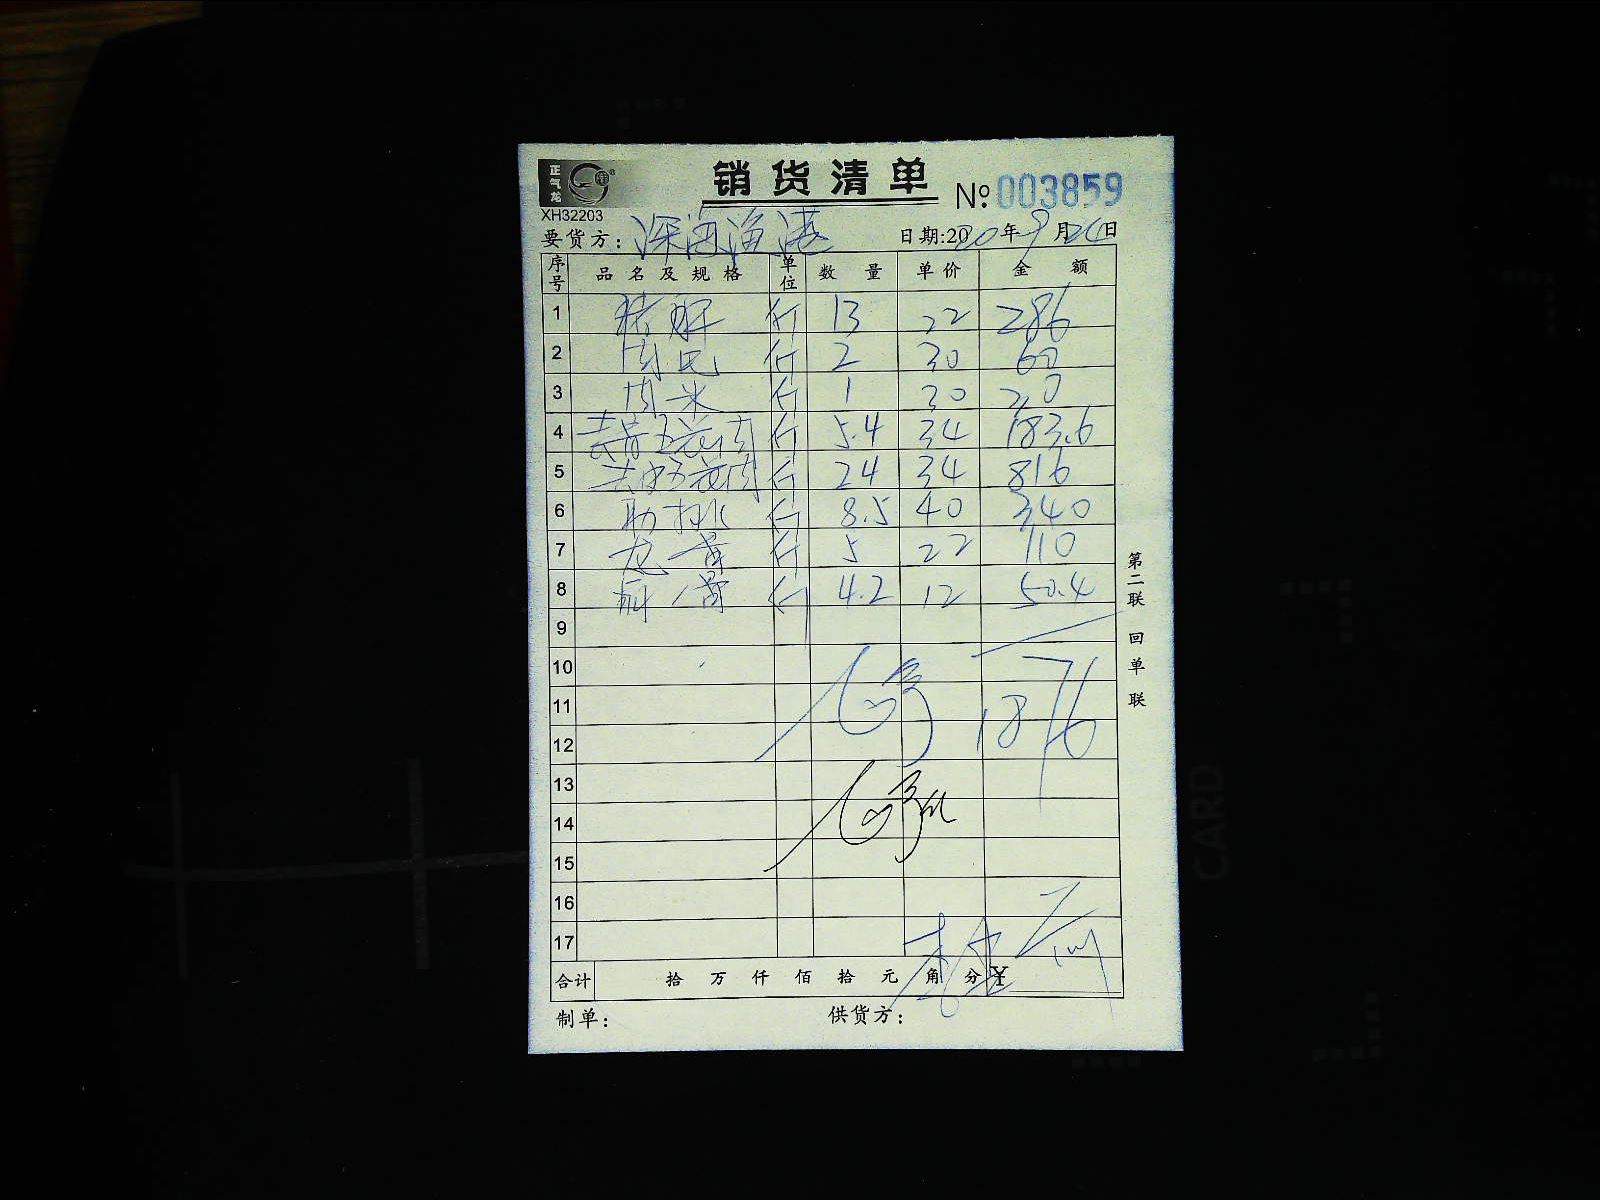 正气龙
销货清单
№ 003859
XH32203
要货方: 深海渔港 日期:2020年9月24日
序号 品名及规格 单位 数量 单价 金额
1 猪 斤 13 22 286
2 肉 斤 2 30 60
3 肉米 斤 1 30 30
4 去骨五花肉 斤 5.4 34 183.6
5 去皮五花肉 斤 24 34 816
6 肋排 斤 8.5 40 340
7 龙骨 斤 5 22 110
8 骨 斤 4.2 12 50.4
9
10
11 1876
12
13
14
15
16
17
合计 拾 万 仟 佰 拾 元 角 分 ¥
制单: 供货方:
第二联 回单联
CARD